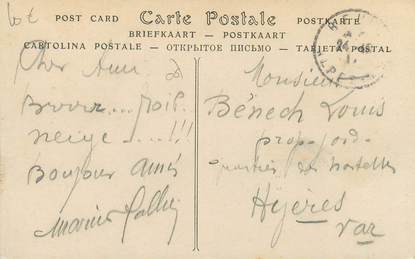 Lot
POST CARD Carte Postale POSTKARTE
BRIEFKAART — POSTKAART
CARTOLINA POSTALE — ОТКРЫТОЕ ПИСЬМО — TARJETA POSTAL
Cher Ami
Brourr...
neige...!!!
Bonjour amis
Marius
Monsieur
Bénech Louis
prop-
quartier des
Hyères
Var